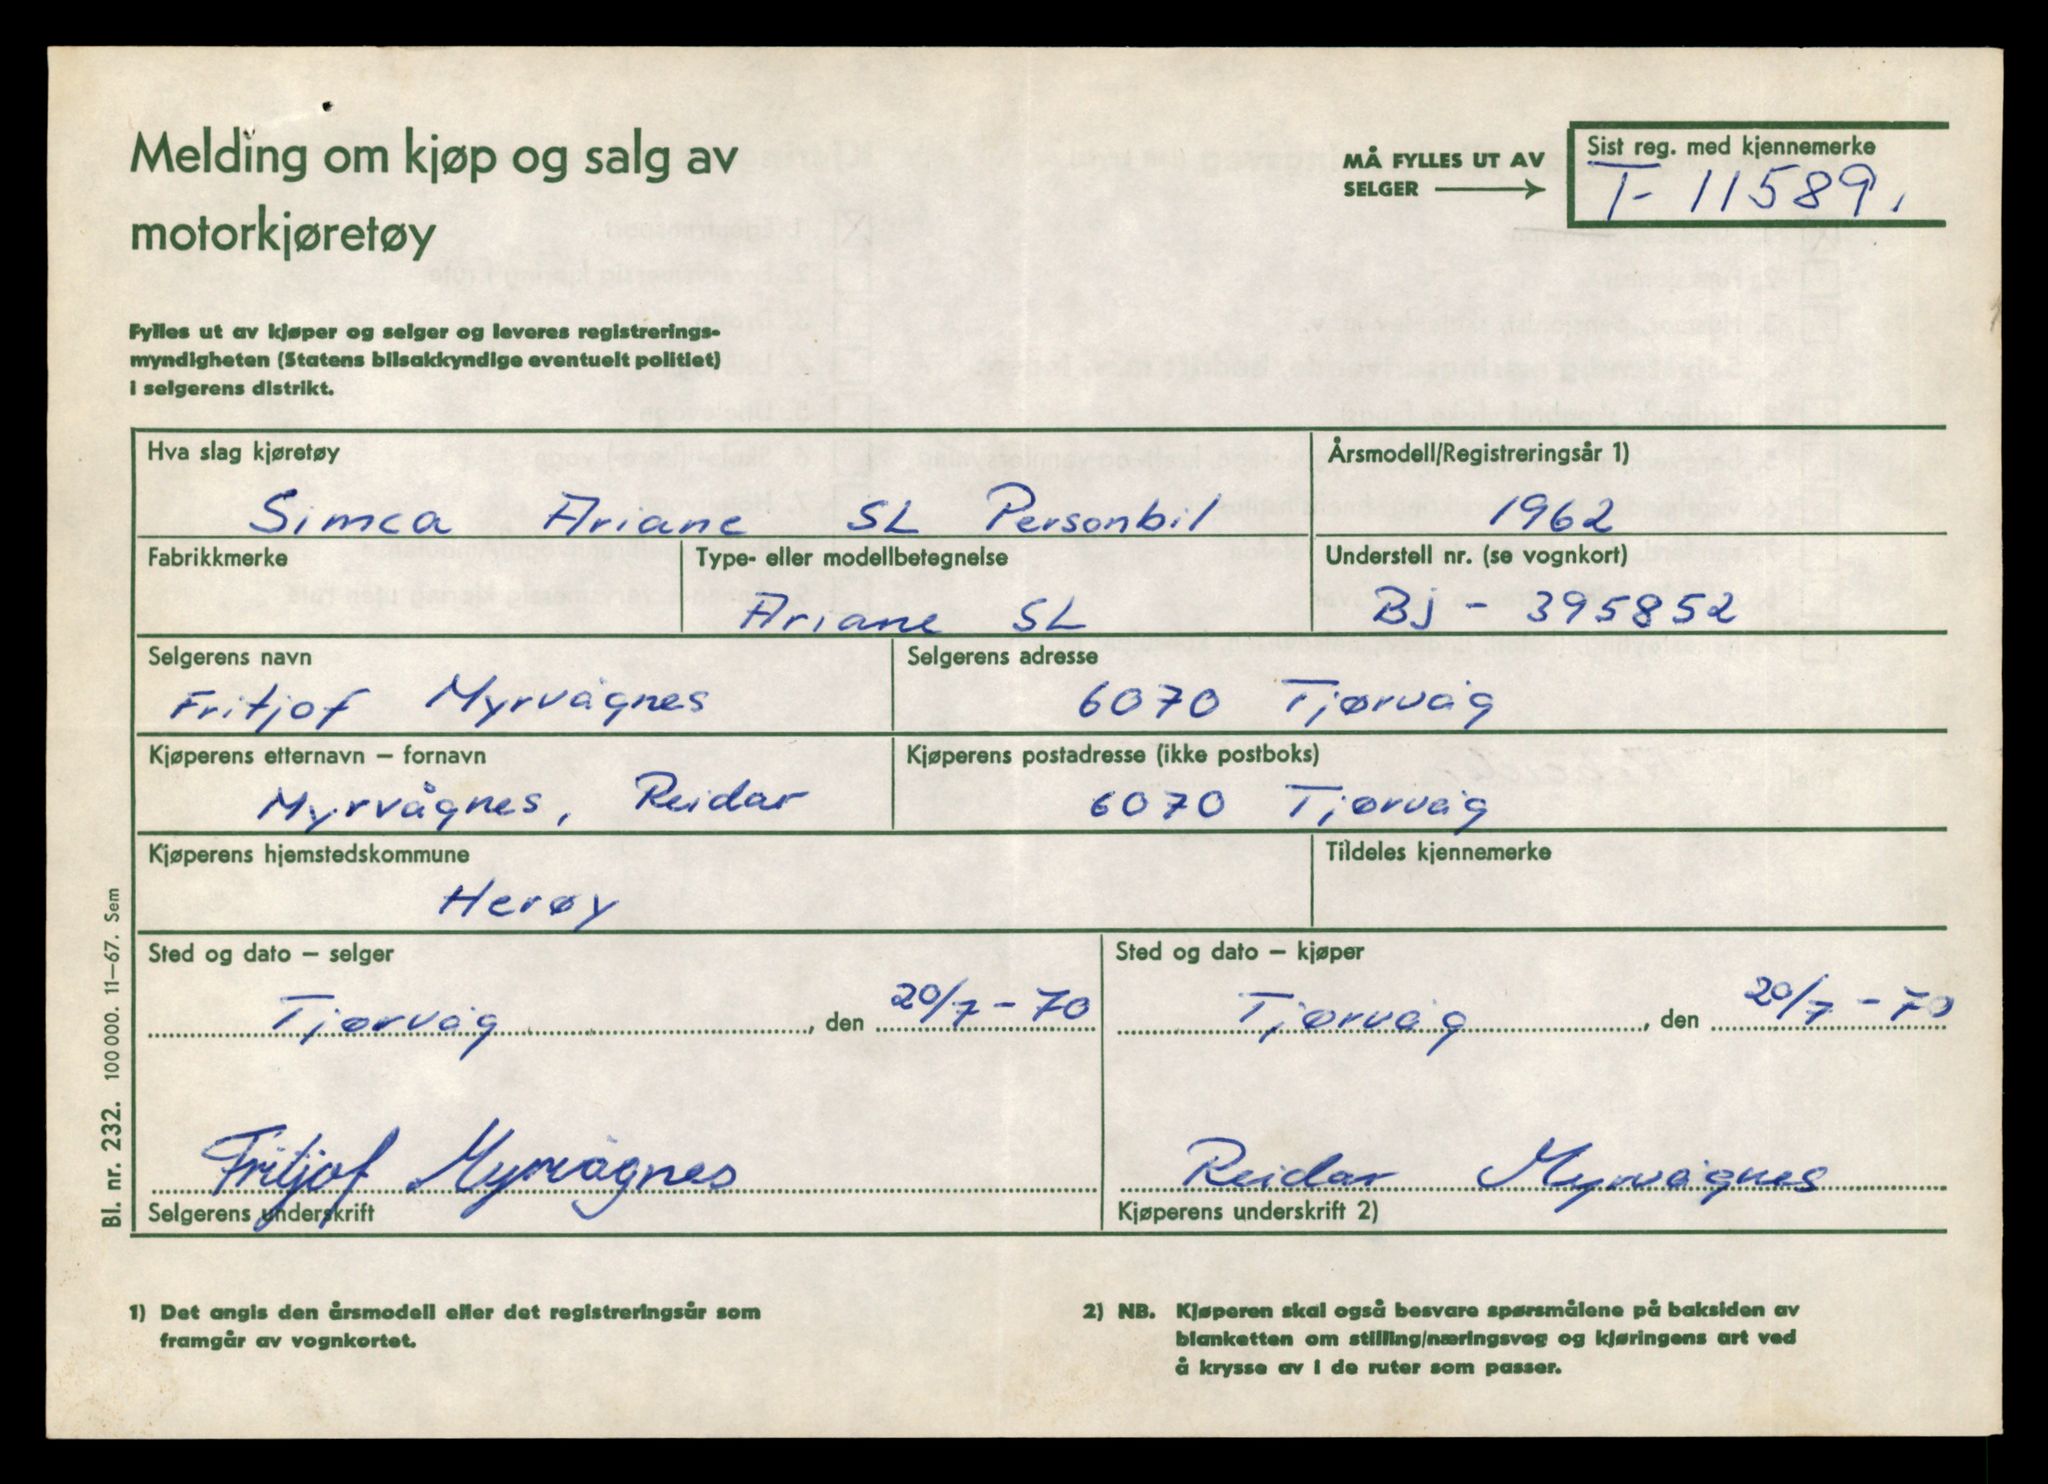 Melding om kjøp og salg av
motorkjøretøy
MÅ FYLLES UT AV
SELGER
Sist reg. med kjennemerke
T- 11589.
Fylles ut av kjøper og selger og leveres registrerings-
myndigheten (Statens bilsakkyndige eventuelt politiet)
i selgerens distrikt.
Hva slag kjøretøy
Simca Ariane SL Personbil
Årsmodell/Registreringsår 1)
1962
Fabrikkmerke
Type- eller modellbetegnelse
Ariane SL
Understell nr. (se vognkort)
Bj - 395852
Selgerens navn
Fritjof Myrvågnes
Selgerens adresse
6070 Tjørvåg
Kjøperens etternavn – fornavn
Myrvågnes, Reidar
Kjøperens postadresse (ikke postboks)
6070 Tjørvåg
Kjøperens hjemstedskommune
Herøy
Tildeles kjennemerke
Sted og dato – selger
Tjørvåg, den 20/7 - 70
Sted og dato – kjøper
Tjørvåg, den 20/7 - 70
Fritjof Myrvågnes
Selgerens underskrift
Reidar Myrvågnes
Kjøperens underskrift 2)
Bl. nr. 232. 100 000. 11–67. Sem
1) Det angis den årsmodell eller det registreringsår som
framgår av vognkortet.
2) NB. Kjøperen skal også besvare spørsmålene på baksiden av
blanketten om stilling/næringsveg og kjøringens art ved
å krysse av i de ruter som passer.